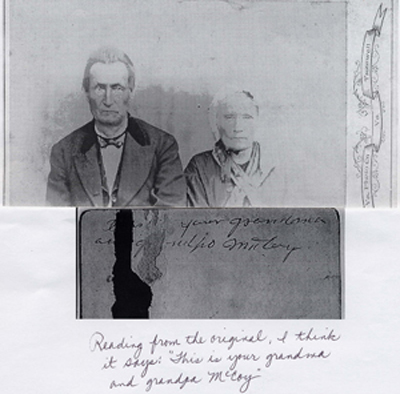 your grandma
McCoy
Reading from the original, I think
it says: "This is your grandma
and grandpa McCoy"